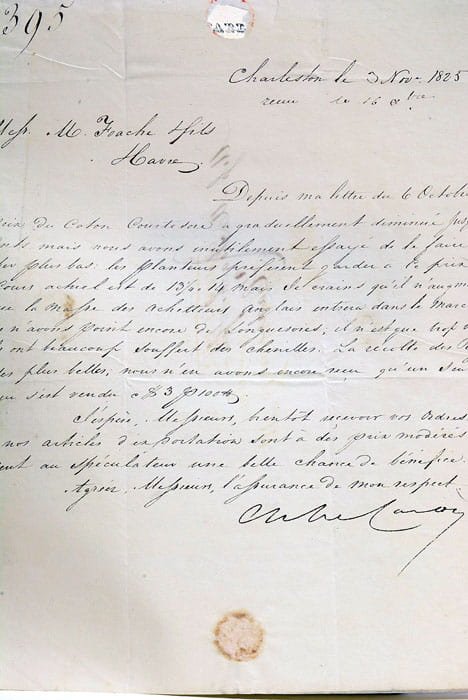 395
Charleston le 3 Nov. 1825
recue le 16 Xbre
Mess. M. Foache & fils
Havre
Depuis ma lettre du 6 Octobre
du Coton Courtesoie a graduellement diminué
mais nous avons inutilement essayé de le faire
plus bas. les planteurs préfèrent garder à ce prix
cours actuel est de 13½ à 14 mais je crains qu'il n'augm
la masse des acheteurs anglais entrera dans le Marc
n'avons point encore de Longuesoies; il n'est que trop
ont beaucoup souffert des chenilles. La récolte des
des plus belles, nous n'en avons encore reçu qu'un seul
s'est vendu à $3 p 100#
J'espère, Messieurs, bientôt recevoir vos Ordres
nos articles d'exportation sont à des prix modérés
au spéculateur une belle chance de bénéfice
Agréez, Messieurs, l'assurance de mon respect